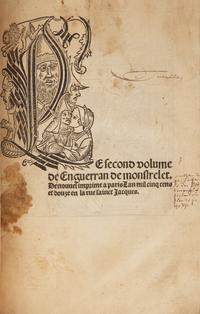 LE second volume
de Enguerran de monstrelet.
De nouuel imprime a paris Lan mil cinq cens
et douze en la rue sainct Jacques.